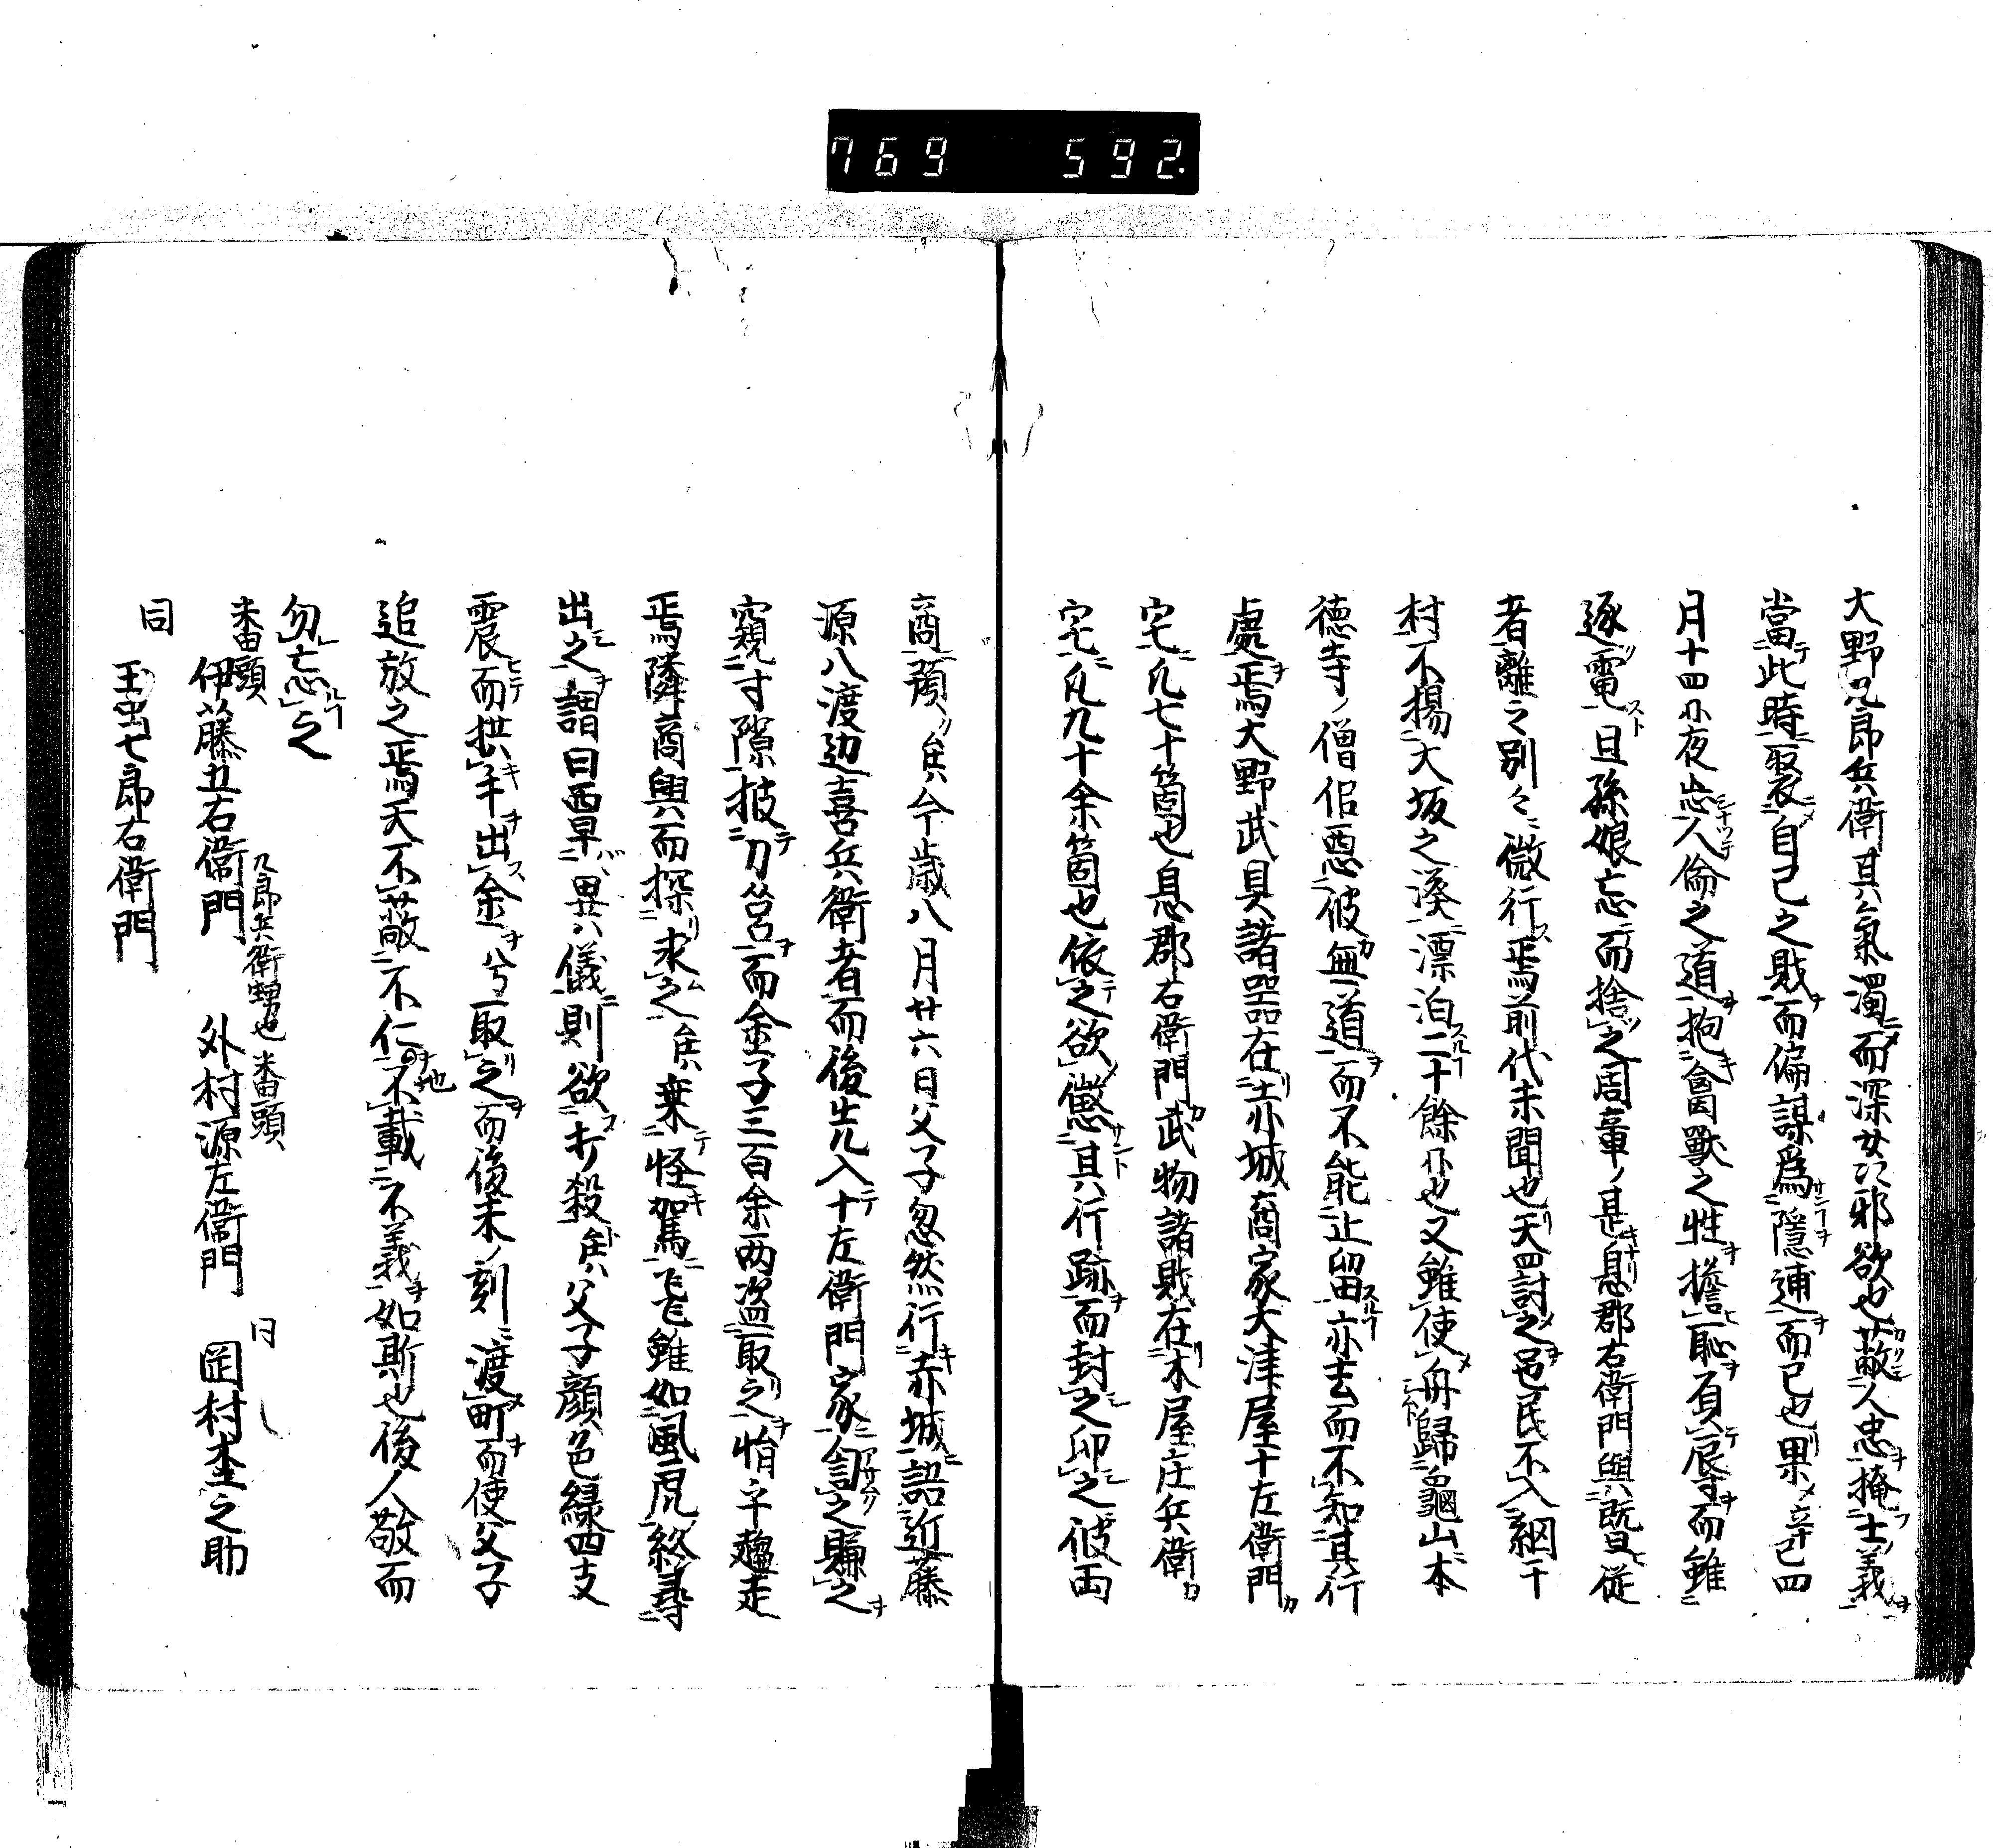 769 592.
大野九郎兵衛其氣濁而深女々邪欲也蔽人忠掩士義
當此時聚自己之財而偏謀為隱逋而已也果辛巳四
月十四日夜忘人倫之道抱禽獸之性擔恥負辱而雖
逐電且孫娘忘而捨之周章甚息郡右衛門與既從
者離之別々微行焉前代未聞也天罰之邑民不入網干
村不揚大坂之湊漂泊二十餘日也又雖使舟歸龜山本
德寺ノ僧侶惡彼無道而不能止留亦去而不知其行
處焉大野武具諸器在赤城商家大津屋十左衛門
宅凡七十箇也息郡右衛門武物諸財在木屋庄兵衛
宅凡九十余箇也依之欲懲其行跡而封之印之彼両
商預矣今歲八月廿六日父子忽然行赤城語近藤
源八渡辺喜兵衛者而後先入十左衛門家訇之賺之
窺寸隙披刀筥而金子三百余両盗取之悄卒趨走
焉隣商與而探求之矣乗怪駕飛雖如風虎終尋
出之謂曰畢異儀則欲打殺矣父子顏色緑四支
震而拱手出金兮取之而後未ノ刻渡町而使父子
追放之焉天不蔽不仁地不載不義如斯也後人敬而
勿忘之
番頭 伊藤五右衛門 九郎兵衛甥也 番頭 外村源左衛門 同 岡村杢之助
同 玉虫七郎右衛門